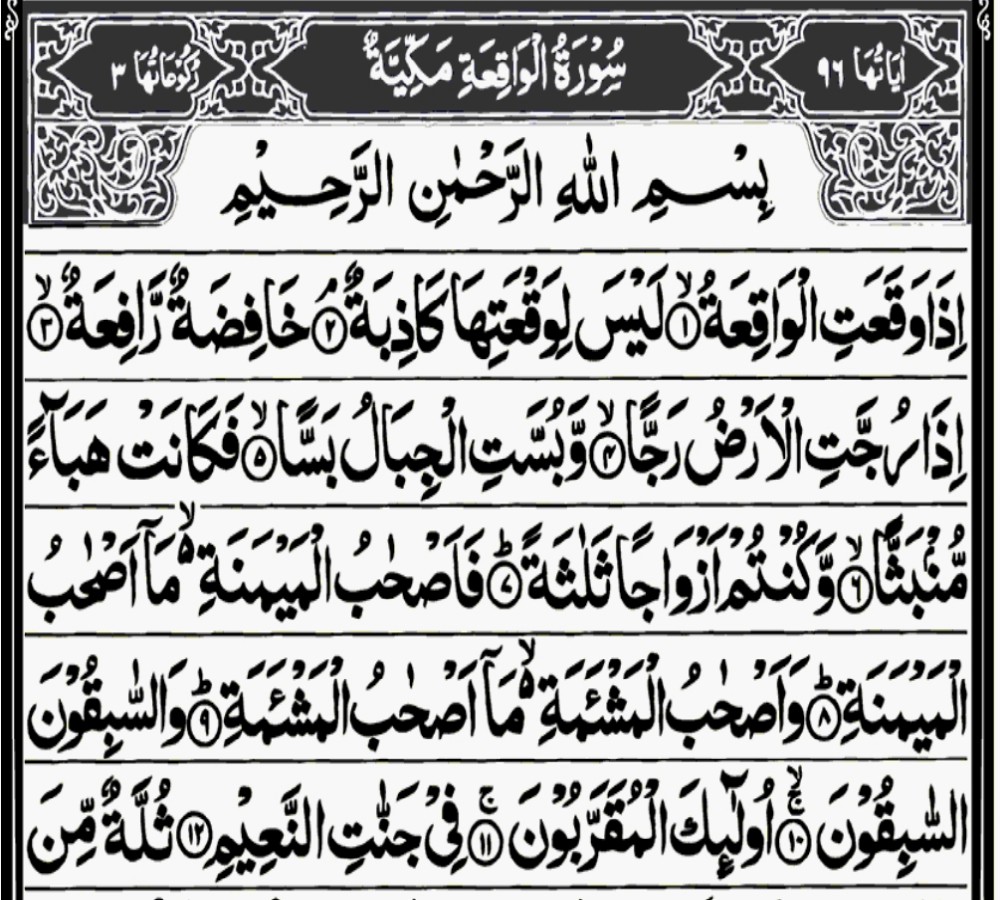 اٰيَاتُهَا ٩٦ سُوْرَةُ الْوَاقِعَةِ مَكِّيَّةٌ رُكُوْعَاتُهَا ٣
بِسْمِ اللهِ الرَّحْمٰنِ الرَّحِيْمِ
اِذَا وَقَعَتِ الْوَاقِعَةُ ۙ﴿١﴾ لَيْسَ لِوَقْعَتِهَا كَاذِبَةٌ ۘ﴿٢﴾ خَافِضَةٌ رَّافِعَةٌ ۙ﴿٣﴾
اِذَا رُجَّتِ الْاَرْضُ رَجًّا ۙ﴿۴﴾ وَّبُسَّتِ الْجِبَالُ بَسًّا ۙ﴿۵﴾ فَكَانَتْ هَبَآءً
مُّنْۢبَثًّا ۙ﴿۶﴾ وَّكُنْتُمْ اَزْوَاجًا ثَلٰثَةً ؕ﴿۷﴾ فَاَصْحٰبُ الْمَيْمَنَةِ ۬ۙ مَاۤ اَصْحٰبُ
الْمَيْمَنَةِ ؕ﴿۸﴾ وَاَصْحٰبُ الْمَشْئَمَةِ ۬ۙ مَاۤ اَصْحٰبُ الْمَشْئَمَةِ ؕ﴿۹﴾ وَالسّٰبِقُوْنَ
السّٰبِقُوْنَ ۚۙ﴿۱۰﴾ اُولٰٓئِكَ الْمُقَرَّبُوْنَ ۚ﴿۱۱﴾ فِيْ جَنّٰتِ النَّعِيْمِ ﴿۱۲﴾ ثُلَّةٌ مِّنَ